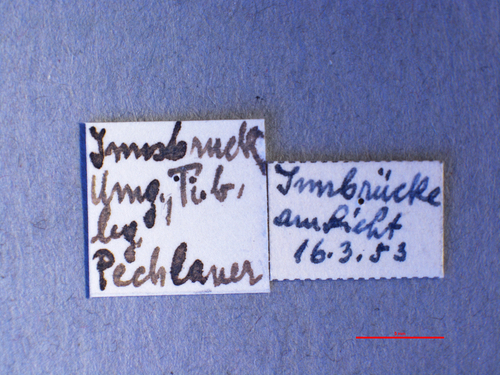 Innsbruck
Umg., Tir.b.
leg.
Pechlaner
Innbrücke
am Licht
16.3.53